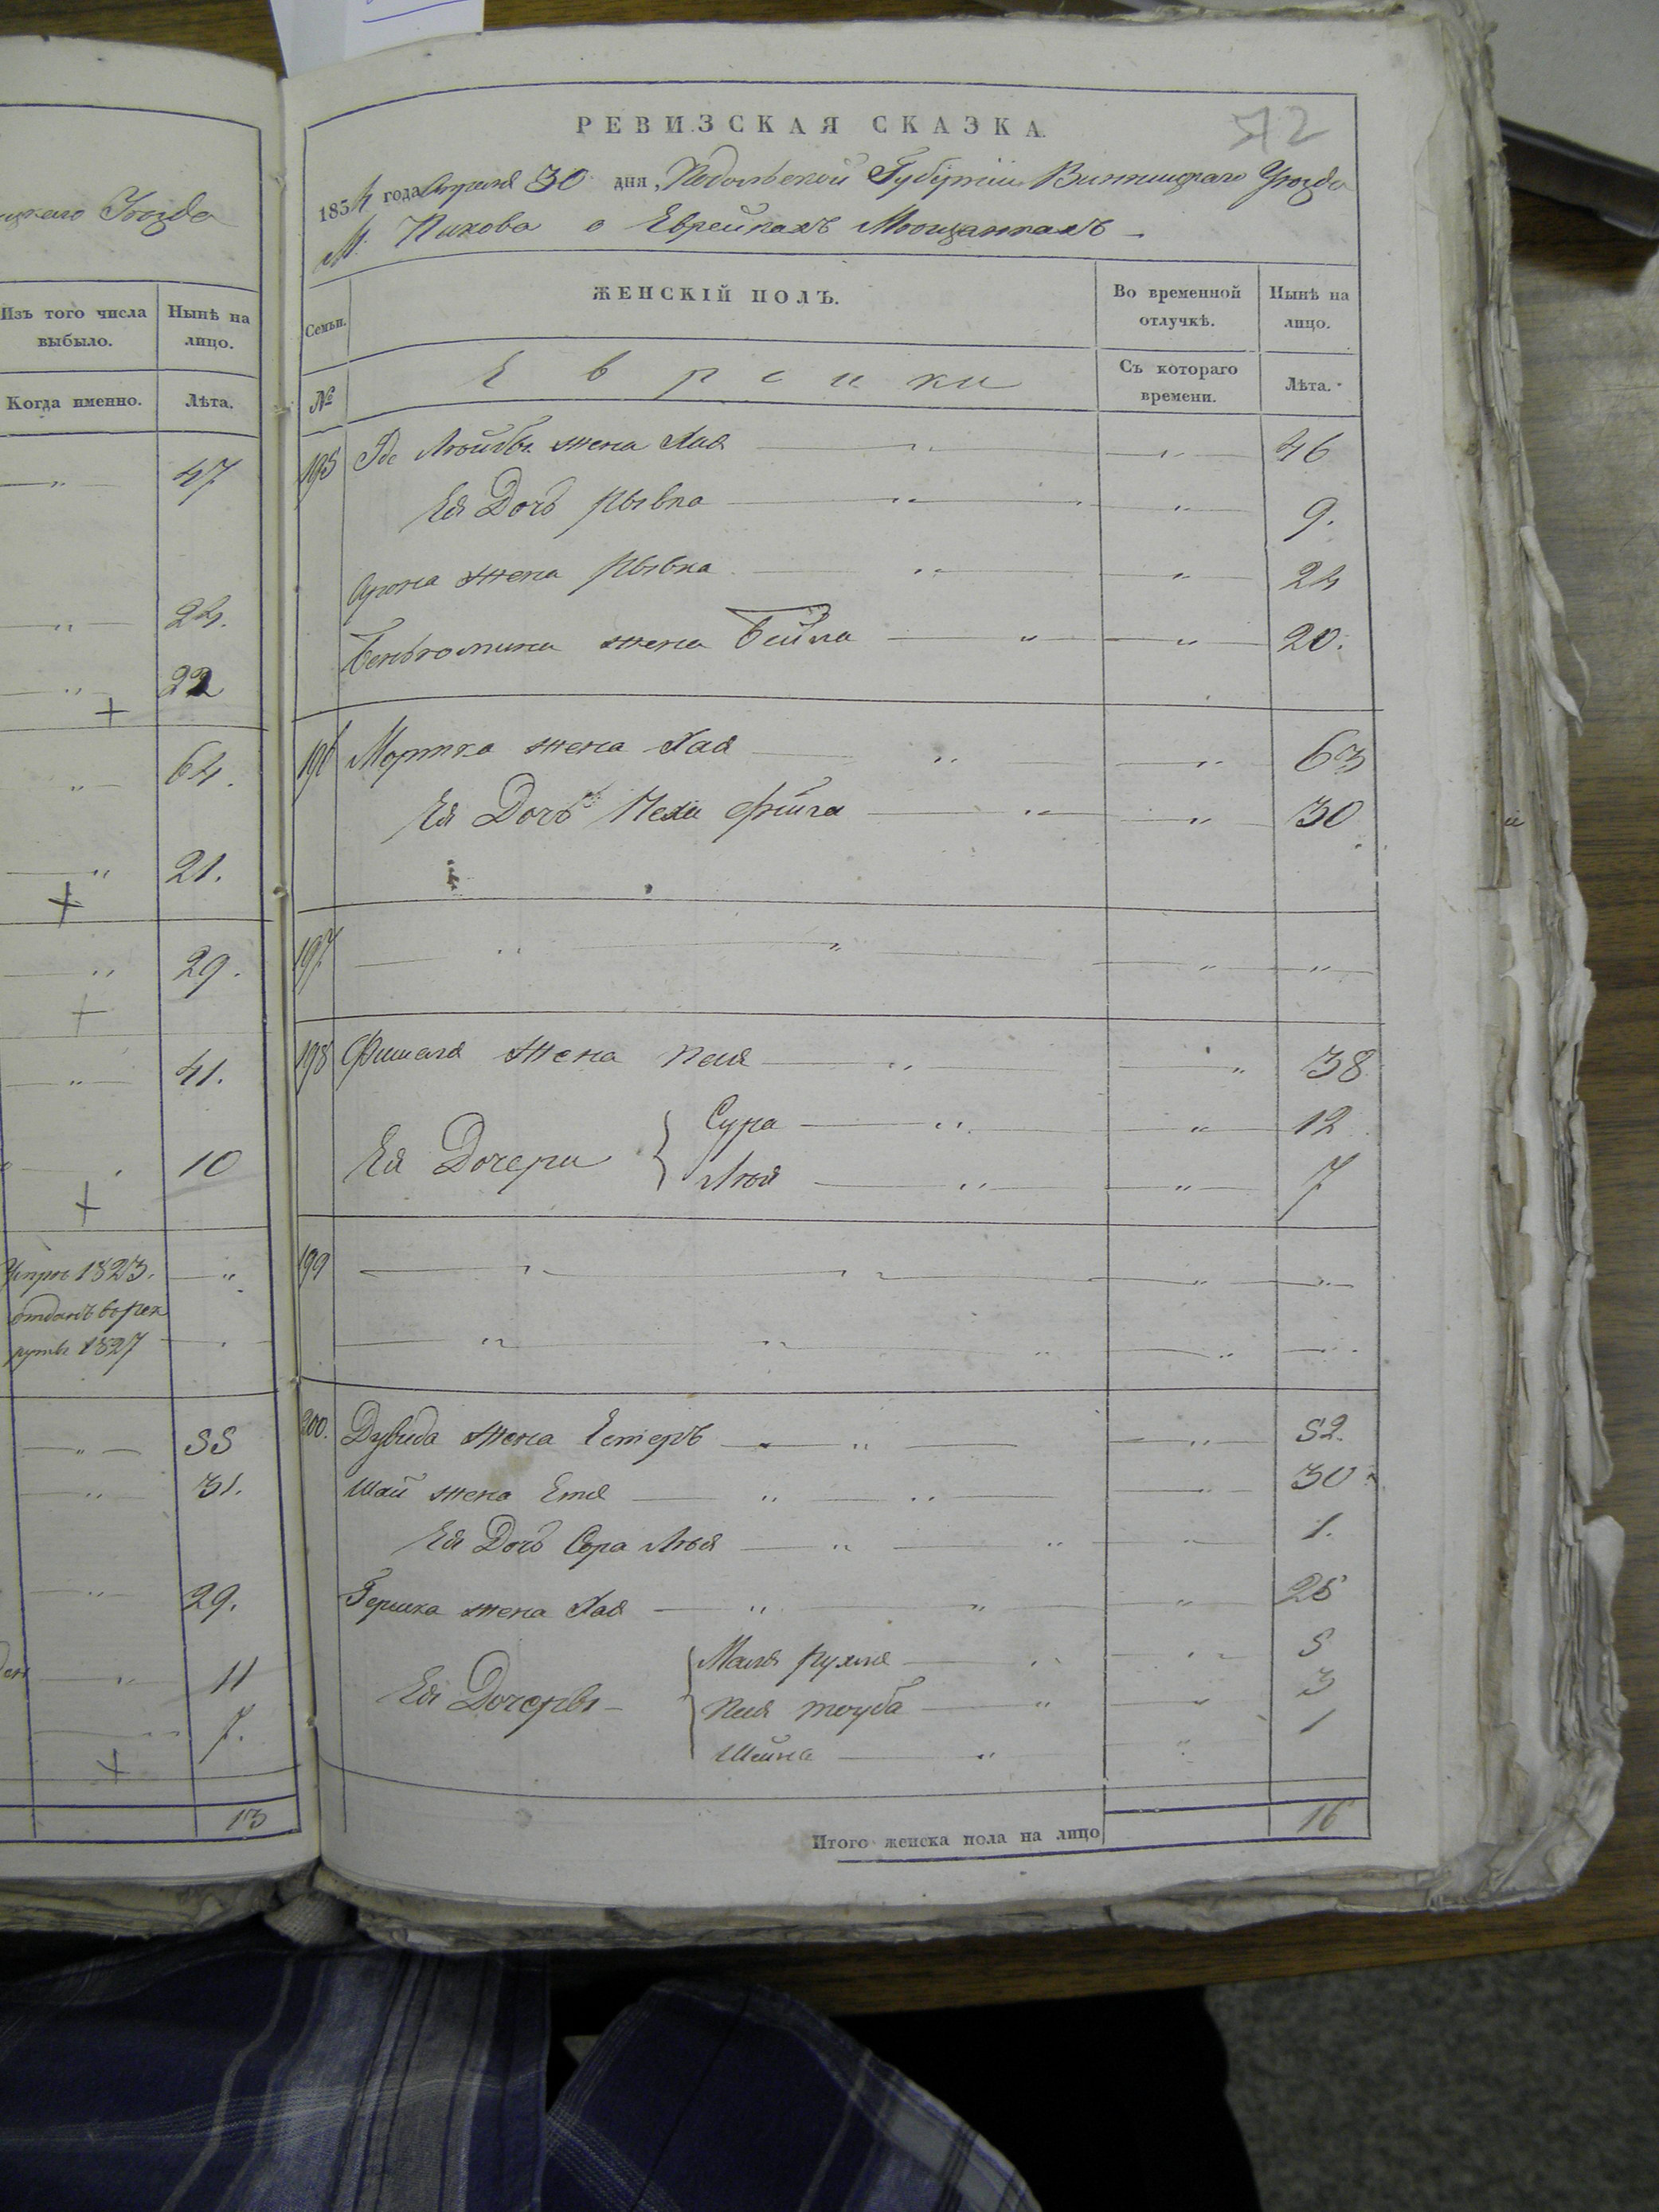 цкаго Уѣзда
Изъ того числа выбыло.
Ныне на лицо.
Когда именно.
Лѣта.
47
24.
22
64.
21.
29.
41.
10
1823.
отданъ въ рек
руты 1827
55
31.
29.
11
7.
13
РЕВИЗСКАЯ СКАЗКА.
512
1854 года Апреля 30 дня, Подольской Губерніи Винницкаго Уѣзда
М. Пикова о Еврейкахъ Мѣщанкахъ
Семьи.
ЖЕНСКІЙ ПОЛЪ.
Во временной отлучкѣ.
Нынѣ на лицо.
№
Еврейки
Съ котораго времени.
Лѣта.
195 Лейбы жена Хая 46
Ея Дочь Рывка 9.
Арона жена Рывка 24
Беньюмина жена Бейла 20.
196 Мортка жена Хая 63
Ея Дочь Нехи Фейга 30
197
198 Фишеля жена Песя 38
Ея Дочери { Сура 12
Лея 7
199
200. Дувида жена Естеръ 52.
Шаи жена Етя 30
Ея Дочь Сора Лея 1.
Гершка жена Хая 25
Ея Дочеры { Маля Рухля 5
Песя тоуба 3
Шейна 1
Итого женска пола на лицо 16